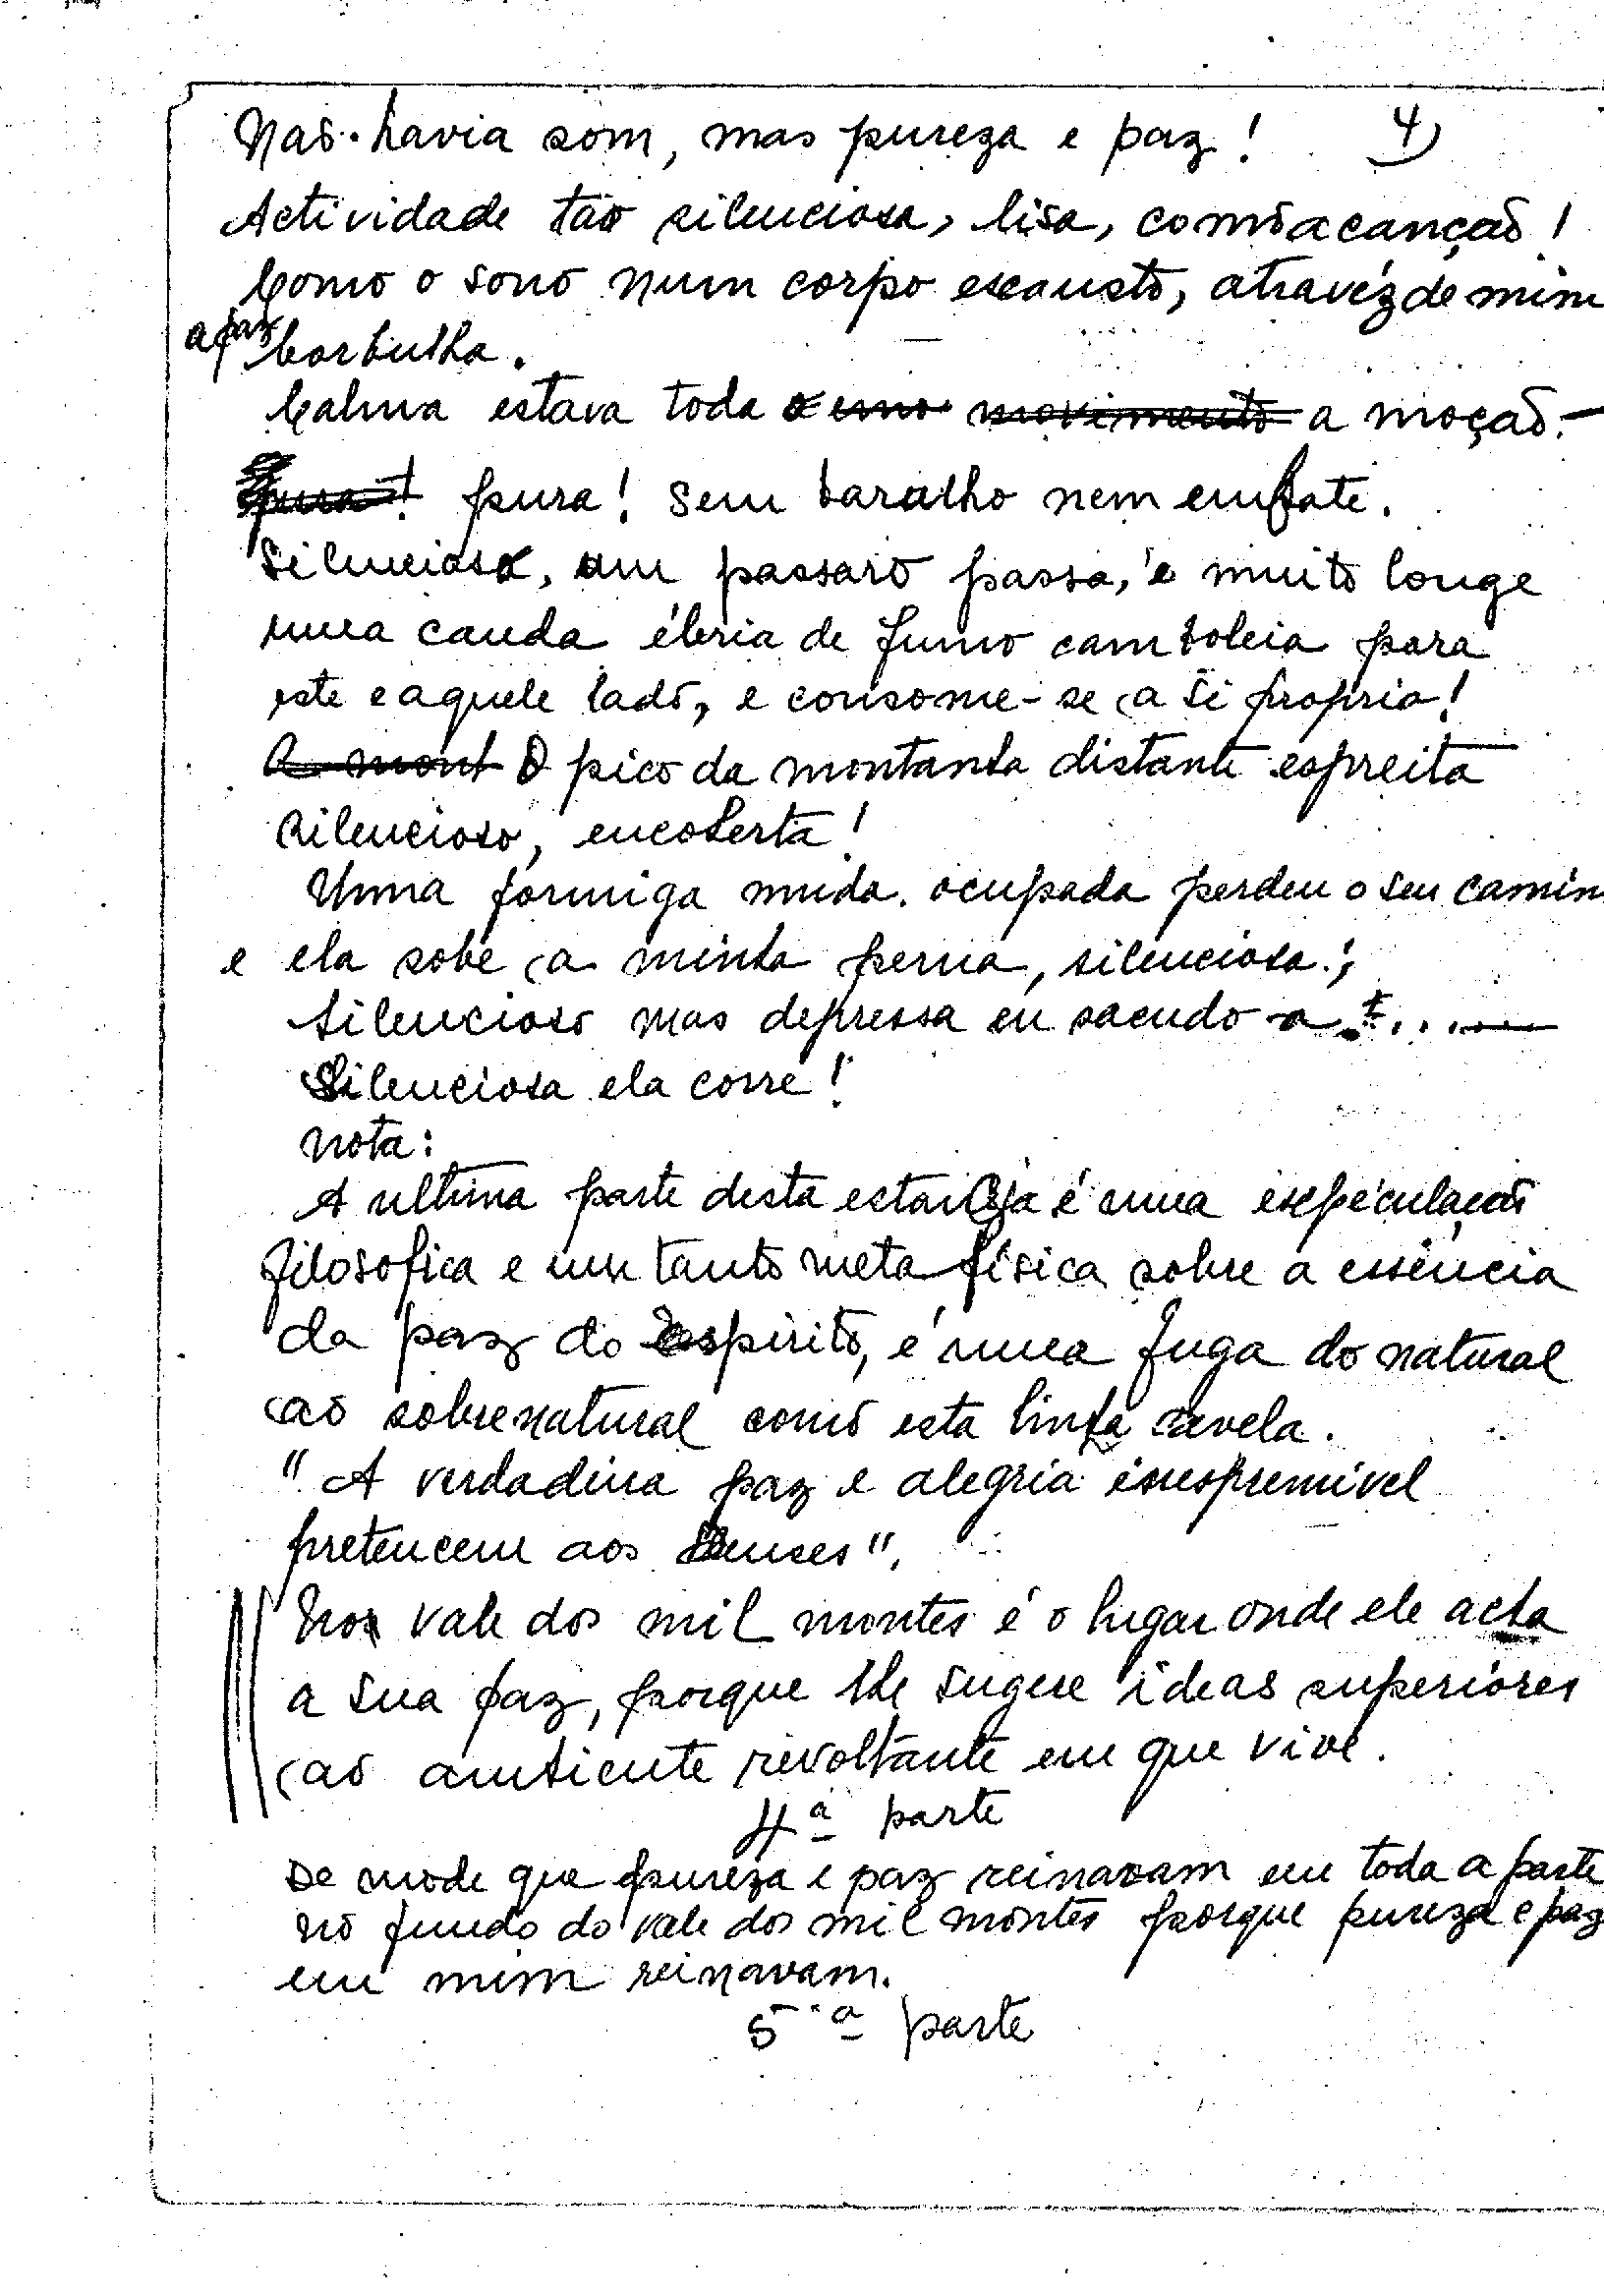 4)
Não havia som, mas pureza e paz!
Actividade tão silenciosa, lisa, como a canção!
Como o sono num corpo escausto, atravéz de mim
a paz borbulha.
Calma estava toda o emo movimento a moção.-
pura! pura! Sem baralho nem embate.
Silencioso, um passaro passa, e muito longe
uma cauda éberia de fumo camboleia para
este e aquele lado, e consome-se a si propria!
A mont O pico da montanha distante espreita
silencioso, encoberta!
Uma formiga muda. ocupada perdeu o seu camin
e ela sobe a minha perna, silenciosa.;
Silencioso mas depressa eu sacudo-a .....
Silenciosa ela corre!
Nota:
A ultima parte desta estancia é uma espéculação
filosofica e um tanto metafísica sobre a essência
da paz do espirito, é uma fuga do natural
ao sobrenatural como esta linha revela.
"A verdadeira paz e alegria inespremivel
pretencem aos Deuses".
Nos vale dos mil montes é o lugar onde ele acha
a sua paz, porque lhe sugere ideas superiores
ao ambiente revoltante em que vive.
4ª parte
De mode que pureza e paz reinavam em toda a parte
no fundo do vale dos mil montes porque pureza e paz
em mim reinavam.
5ª parte